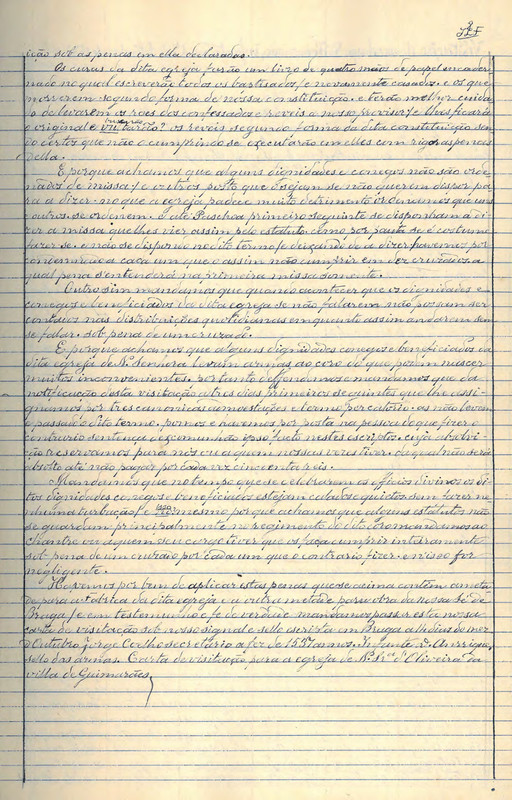 ição sob as penas em ella declaradas.
Os curas da dita egreja terão um livro de quatro mãos de papel encader-
nado no qual escreverão todos os baptisados, e novamente casados e os que
morrerem segundo forma de nossa constituição e terão melhor cuida-
do de levarem os roes dos confessados e reveis a nosso provisor, e
o original e os reveis segundo forma da dita constituição sen-
do certos que não o cumprindo se executarão em elles com rigor as penas
della.
E porque achamos que alguns dignidades e conegos não são orde-
nados de missa, e outros posto que o sejam se não querem dispor pa-
ra a dizer no que a egreja padece muito detrimento ordenamos que uns
e outros se ordenem e até Paschoa primeiro seguinte se disponham a di-
zer a missa que lhes vier assim pelo estatuto como por pauta se é costume
fazer se e não se dispondo no dito termo, e deixando de a dizer havemos por
condemnado a cada um que o assim não cumprir em dez cruzados a
qual pena s'entenderá na primeira missa somente.
Outro sim mandamos que quando acontecer que os dignidades e
conegos e beneficiados da dita egreja se não falarem não possam ser
contados nas distribuições quotidianas emquanto assim andarem sem
se falar sob pena de um cruzado.
E porque achamos que alguns dignidades conegos e beneficiados da
dita egreja de N. Senhora levam armas ao coro do que podem nascer
muitos inconvenientes, por tanto defendemos e mandamos que da
notificação desta visitação a tres dias primeiros seguintes que lhe assi-
gnamos por tres canonicas admoestações e termo peremptorio as não levem
e passado o dito termo, pomos e havemos por posta na pessoa do que fizer o
contrario sentença de excomunhão ipso facto nestes escriptos cuja absolvi-
ção reservamos para nós ou a quem nossas vezes tiver da qual não será
absolto até não pagar por cada vez cincoenta reis.
Mandamos que no tempo que se celebrarem os officios divinos os di-
tos dignidades conegos e beneficiados estejam calados quietos sem fazer ne-
nhuma turbação, e mesmo porque achamos que alguns estatutos não
se guardam principalmente no regimento do dito coro mandamos ao
Chantre ou a quem seu cargo tiver que os faça cumprir inteiramente
sob pena de um cruzado por cada um que o contrario fizer e nisso for
negligente.
Havemos por bem de aplicar estas penas que se acima contem ameta-
de para a Fabrica da dita egreja e a outra metade para obra da nossa Sé de
Braga, e em testemunho e fé de verdade mandamos passar esta nossa
carta de visitação sob nosso signal e sello escripta em Braga aos dias do mez
d'Outubro Jorge Coelho secretario a fez de 1537 annos. Infante D. Anrrique,
sello das armas. Carta de visitação para a egreja de N. Sr.ª d'Oliveira da
villa de Guimarães